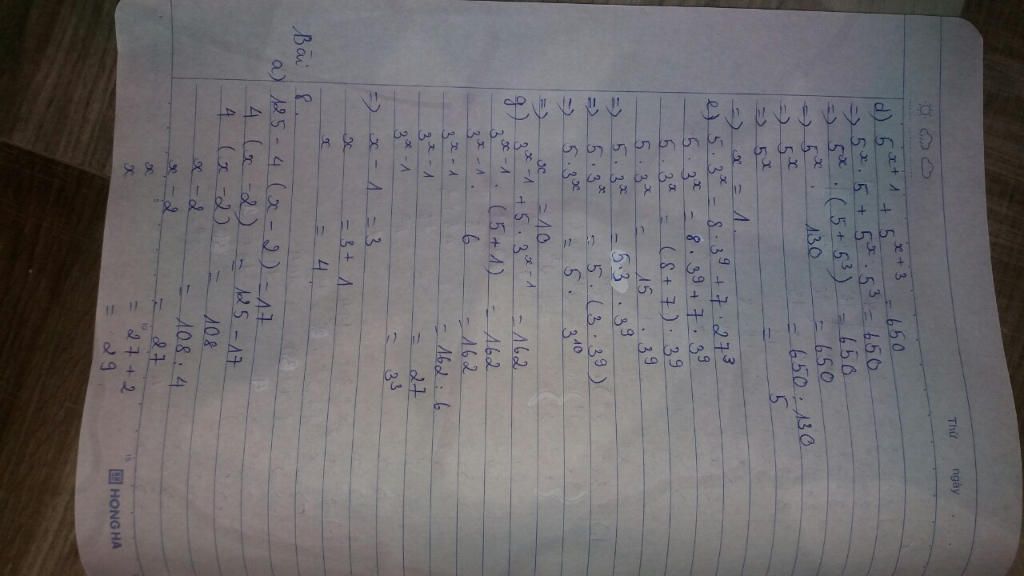 Thứ ngày
d) 5^{x+1} + 5^{x+3} = 650
=) 5^x . 5 + 5^x . 5^3 = 650
=) 5^x . (5 + 5^3) = 650
=) 5^x . 130 = 650
=) 5^x = 650 : 130
=) 5^x = 5
=) x = 1.
e) 5 . 3^x = 8 . 3^9 + 7 . 27^3
5 . 3^x = 8 . 3^9 + 7 . 3^9
5 . 3^x = (8 + 7) . 3^9
5 . 3^x = 15 . 3^9
=) 5 . 3^x = 5.3 . 3^9
=) 5 . 3^x = 5 . (3 . 3^9)
=) 5 . 3^x = 5 . 3^{10}
=) x = 10
g) 3^{x-1} + 5 . 3^{x-1} = 162
3^{x-1} . (5+1) = 162
3^{x-1} . 6 = 162
3^{x-1} = 162 : 6
3^{x-1} = 27
3^{x-1} = 3^3
=) x - 1 = 3
x = 3 + 1
x = 4
Bài 8.
a) 125 - 4 (x - 2) = 17
4 (x - 2) = 125 - 17
4 (x - 2) = 108
x - 2 = 108 : 4
x - 2 = 27
x = 27 + 2
x = 29
HONG HA